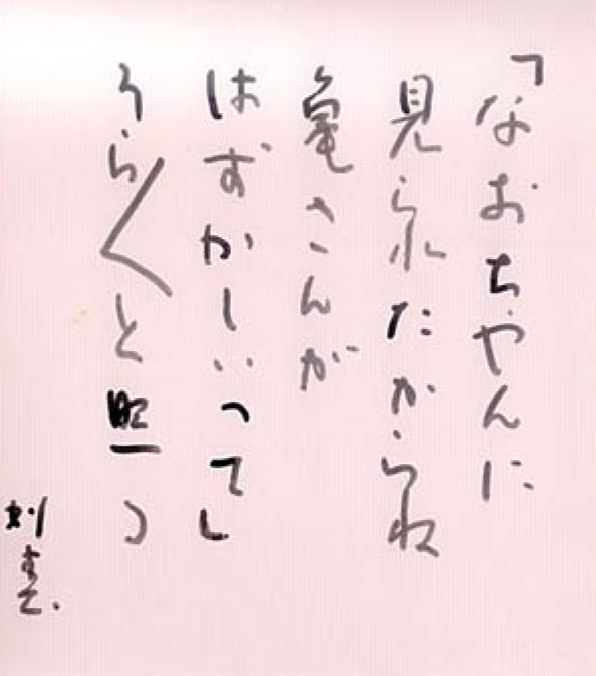 「なおちやんに
見られたからね
亀さんが
はずかしいって」
うら〱と照つ